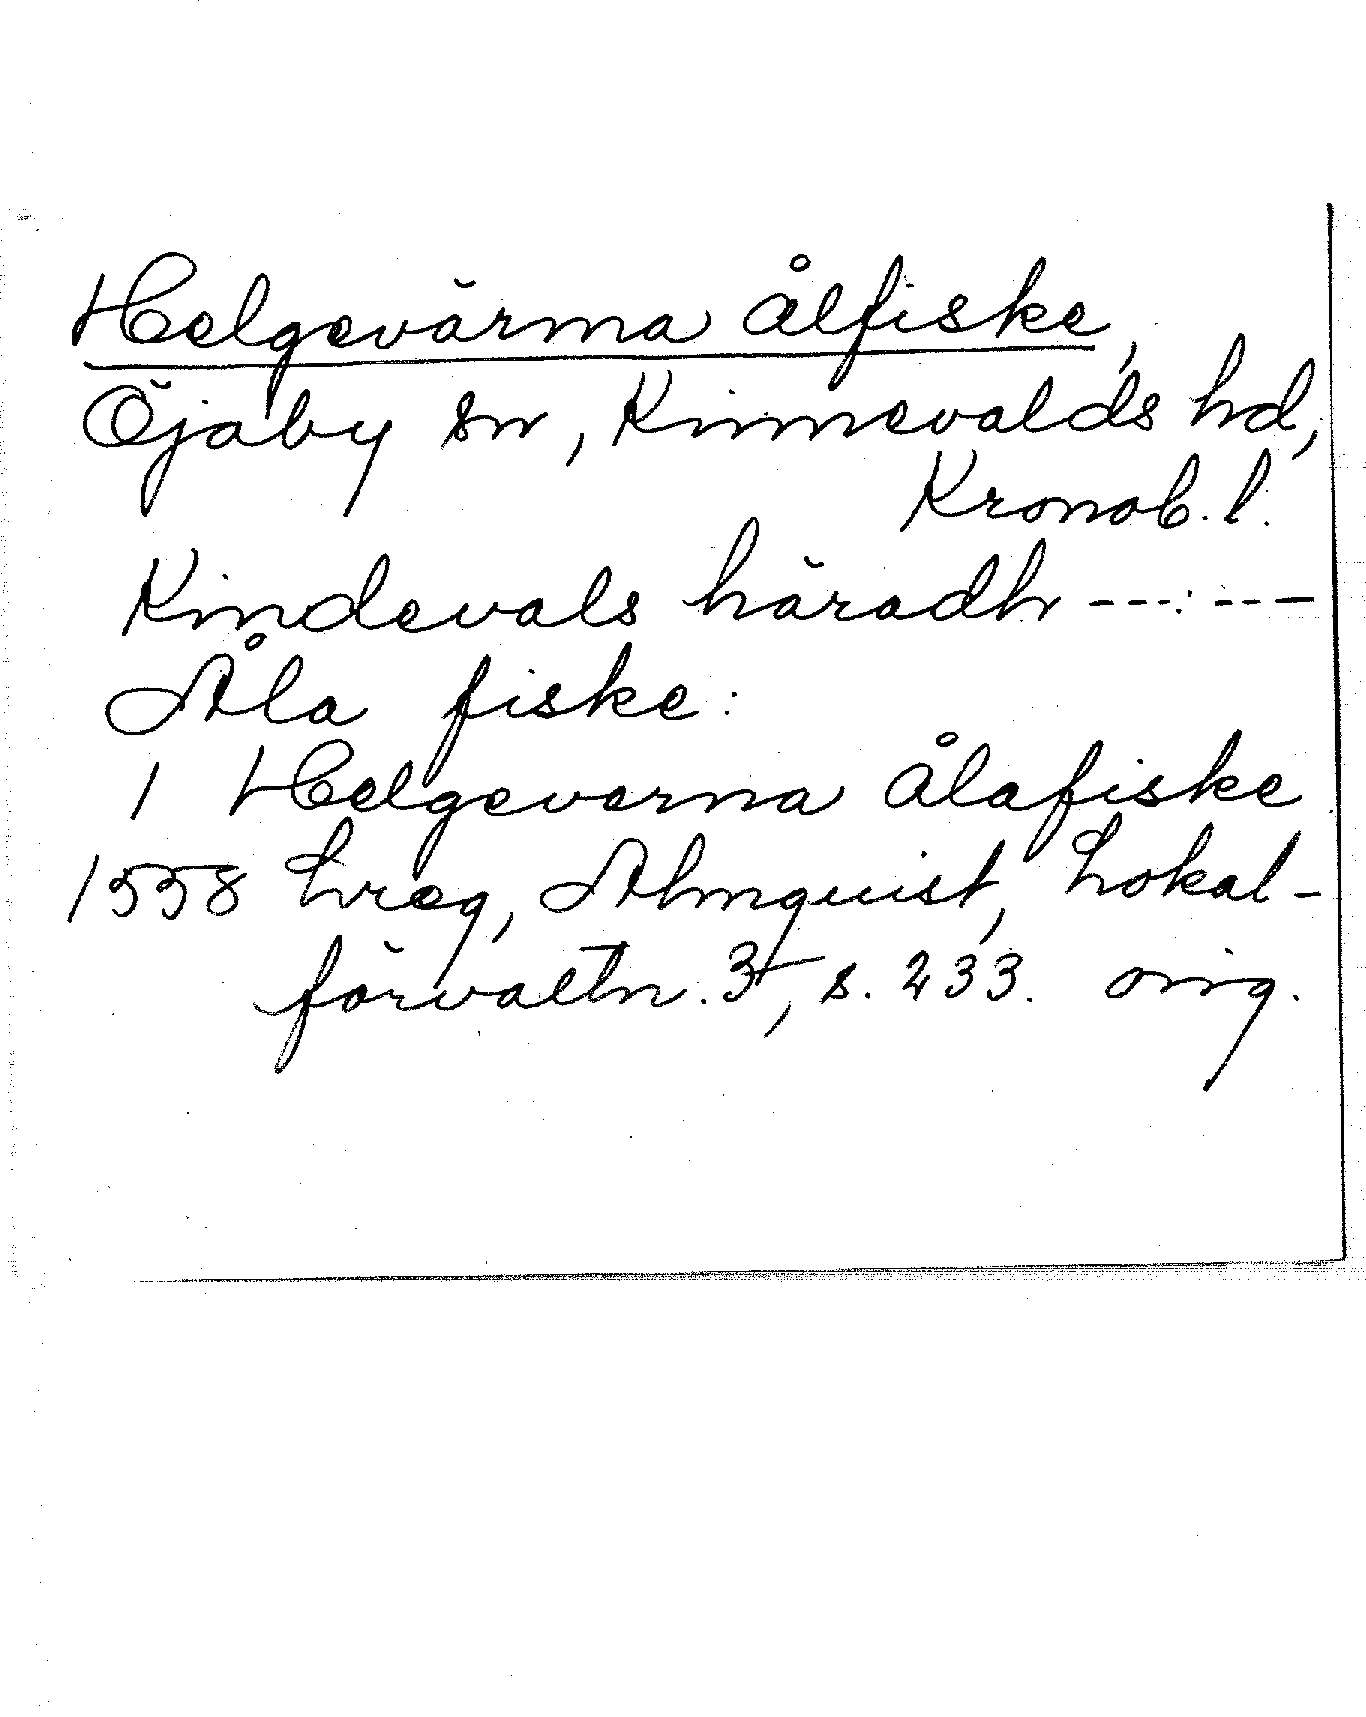 Helgevärma ålfiske,
Öjaby sn, Kinnevalds hd,
Kronob. l.
Kindevals häradh ---:---
Åla fiske:
1 Helgeverna ålafiske
1558 Lreg, Almquist, Lokal-
förvaltn. 3, s. 233. orig.